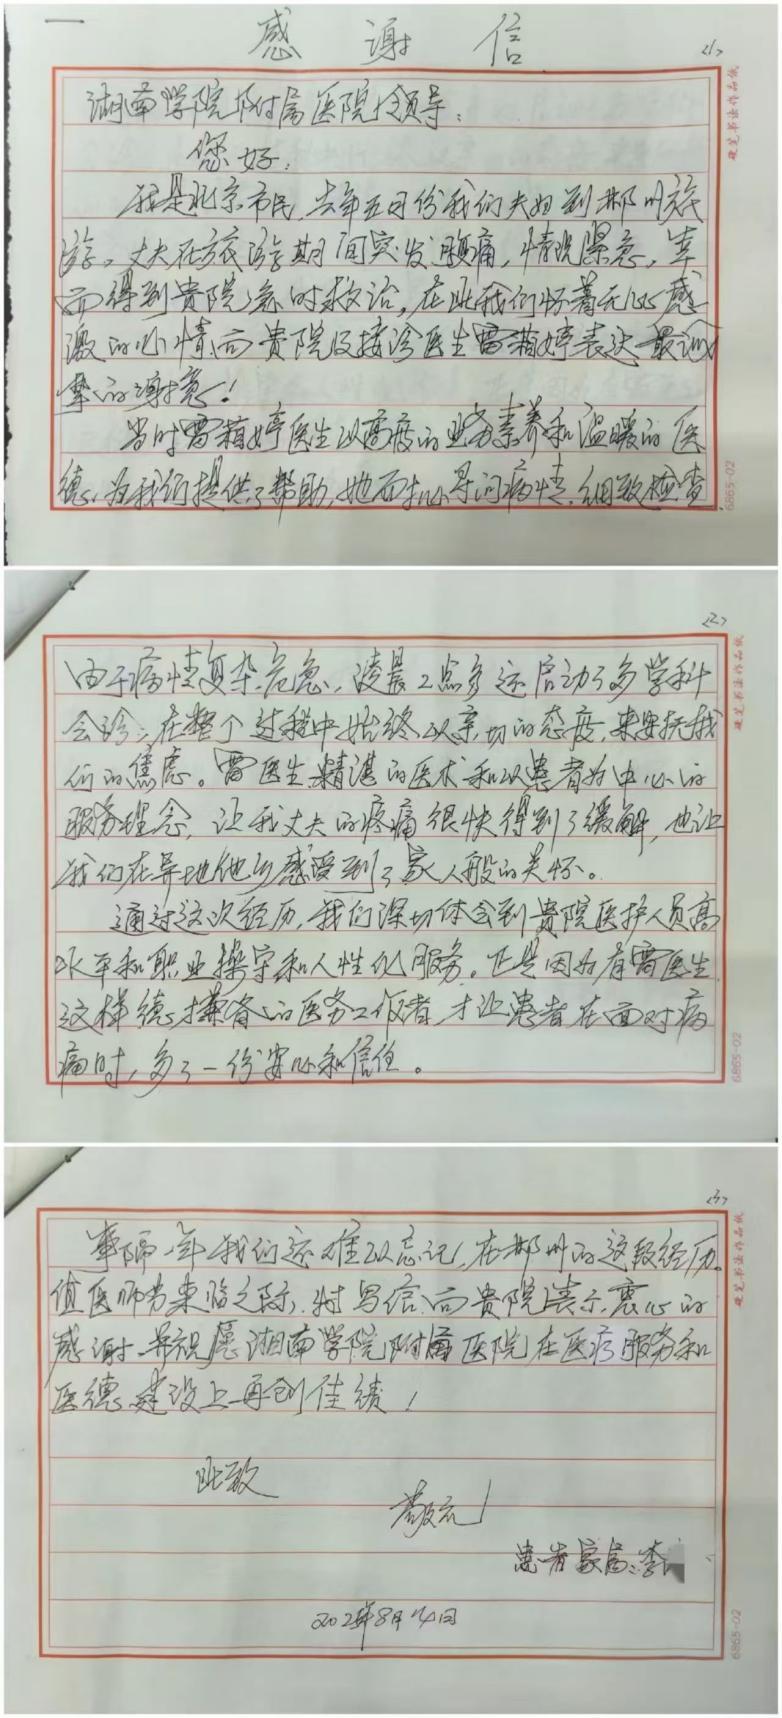 感谢信
<1>
湘南学院附属医院领导：
您好：
我是北京市民，去年五月份我们夫妇到郴州旅
游。丈夫在旅游期间突发腹痛，情况紧急，幸
而得到贵院急时救治，在此我们怀着无比感
激的心情，向贵院及接诊医生雷箱婷表达最诚
挚的谢意！
当时雷箱婷医生以高度的业务素养和温暖的医
德，为我们提供了帮助，她耐心寻问病情，细致检查
硬笔书法作品纸
6865-02
<2>
由于病情复杂危急，凌晨2点多还启动了多学科
会诊，在整个过程中始终以亲切的态度，来安抚我
们的焦虑。雷医生精湛的医术和以患者为中心的
服务理念，让我丈夫的疼痛很快得到了缓解，也让
我们在异地他乡感受到了家人般的关怀。
通过这次经历，我们深切体会到贵院医护人员高
水平和职业操守和人性化服务。正是因为有雷医生
这样德才兼备的医务工作者，才让患者在面对病
痛时，多了一份安心和信任。
硬笔书法作品纸
6865-02
<3>
事隔一年我们还难以忘记，在郴州的这段经历。
值医师节来临之际，特写信向贵院表示衷心的
感谢，并祝愿湘南学院附属医院在医疗服务和
医德建设上再创佳绩！
此致
敬礼
患者家属：李
8月14日
硬笔书法作品纸
6865-02